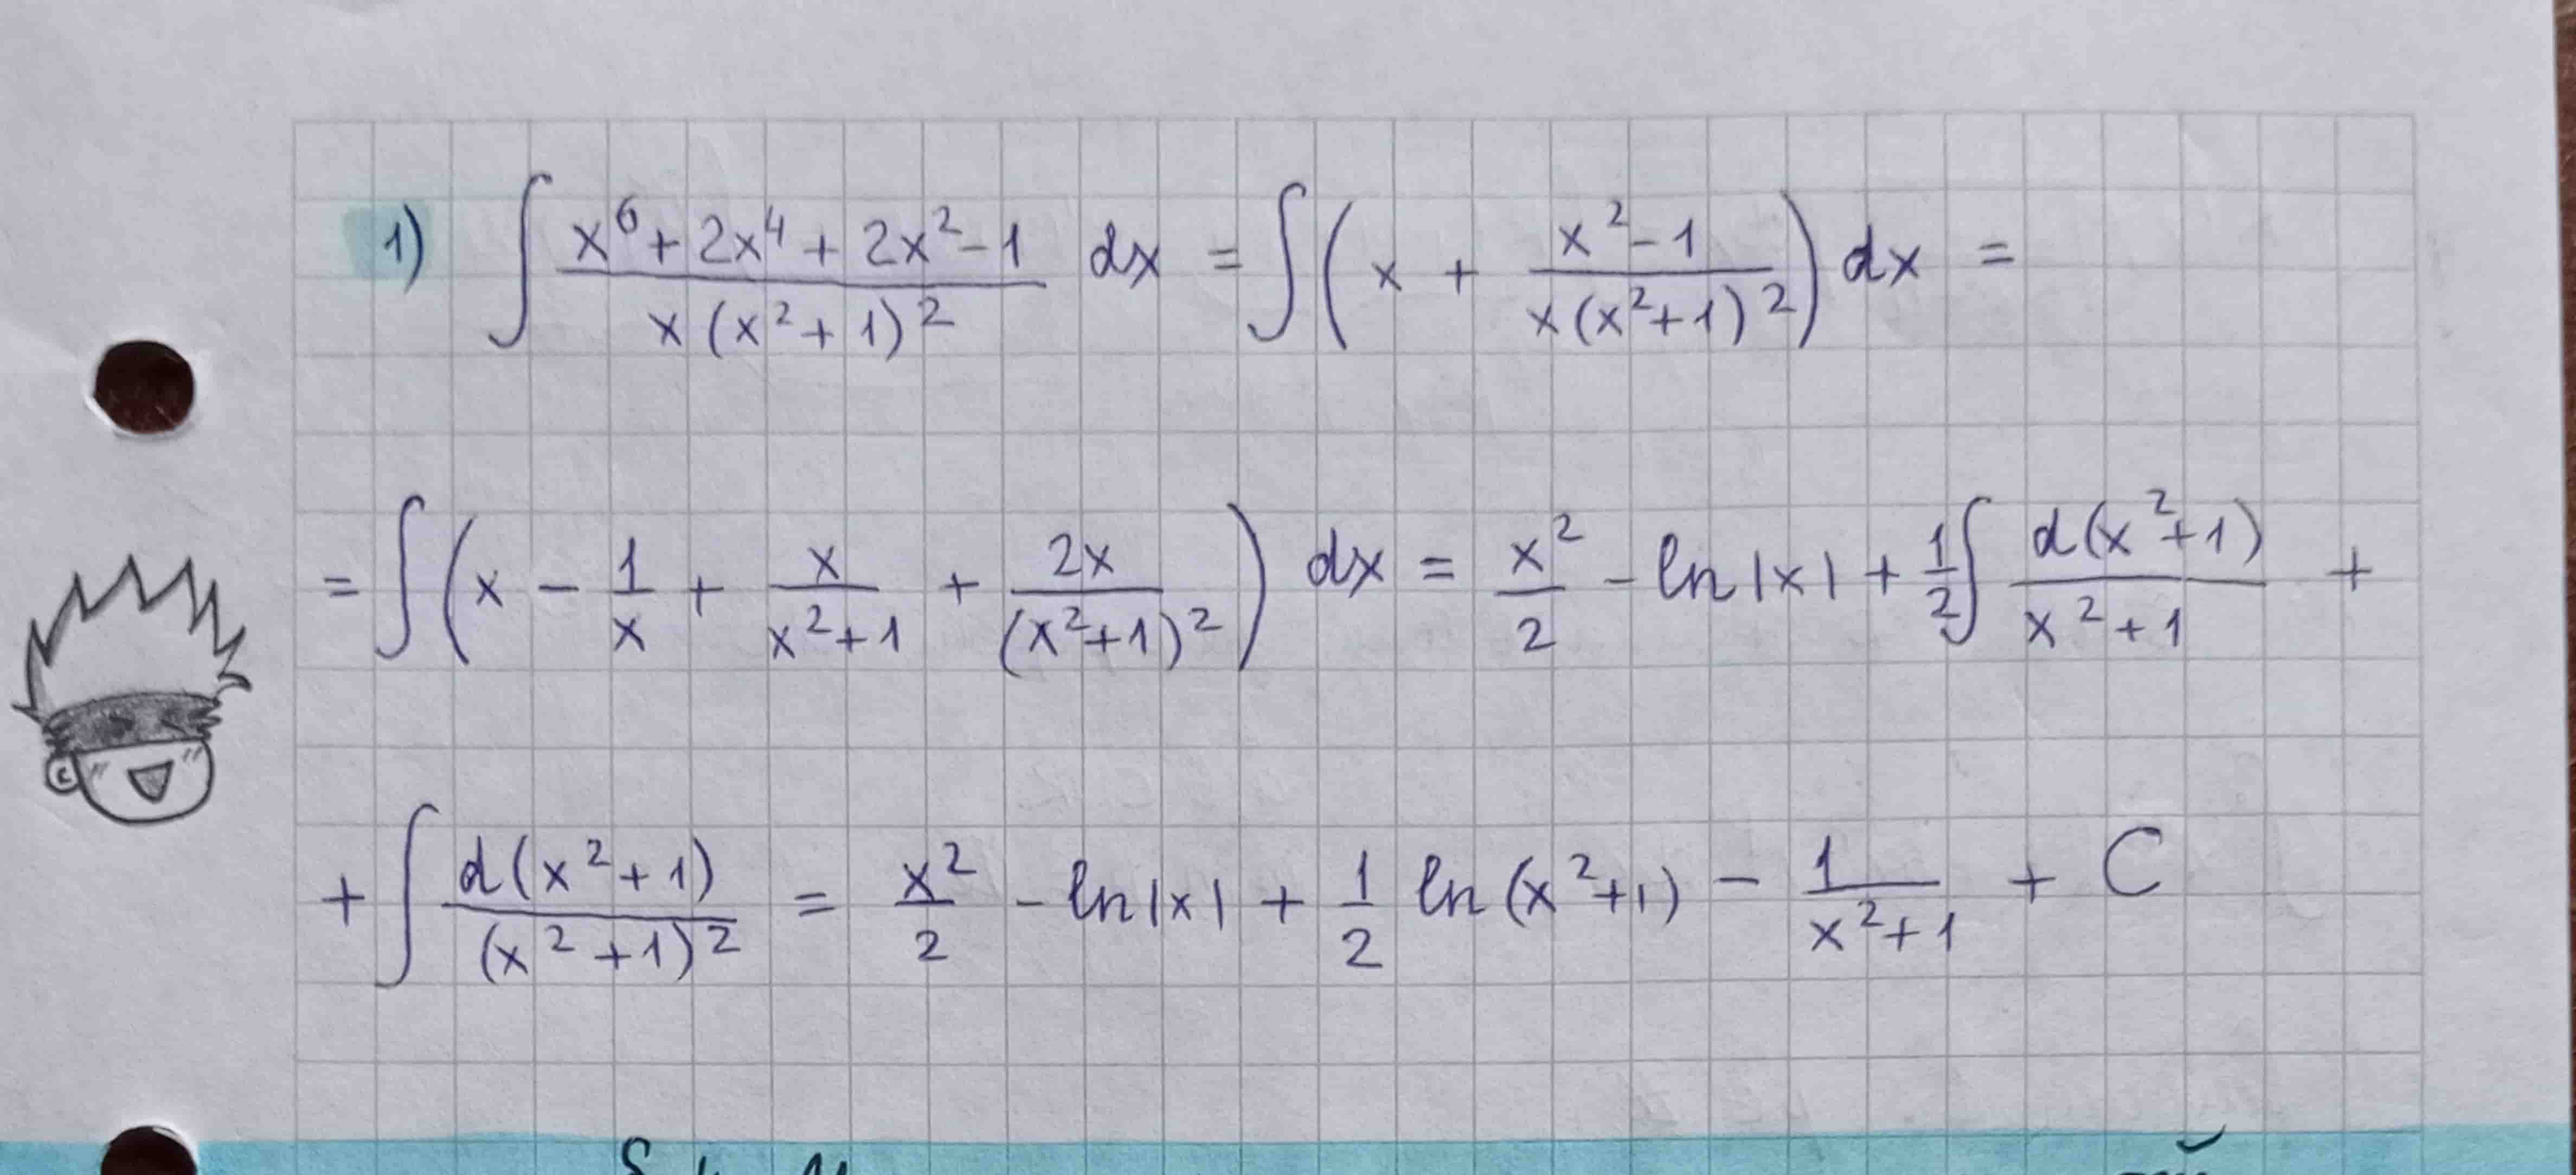 1) ∫ (x⁶ + 2x⁴ + 2x² - 1)/(x (x² + 1)²) dx = ∫ (x + (x² - 1)/(x (x² + 1)²)) dx =
= ∫ (x - 1/x + x/(x² + 1) + 2x/(x² + 1)²) dx = x²/2 - ln |x| + 1/2 ∫ d(x² + 1)/(x² + 1) +
+ ∫ d(x² + 1)/(x² + 1)² = x²/2 - ln |x| + 1/2 ln (x² + 1) - 1/(x² + 1) + C